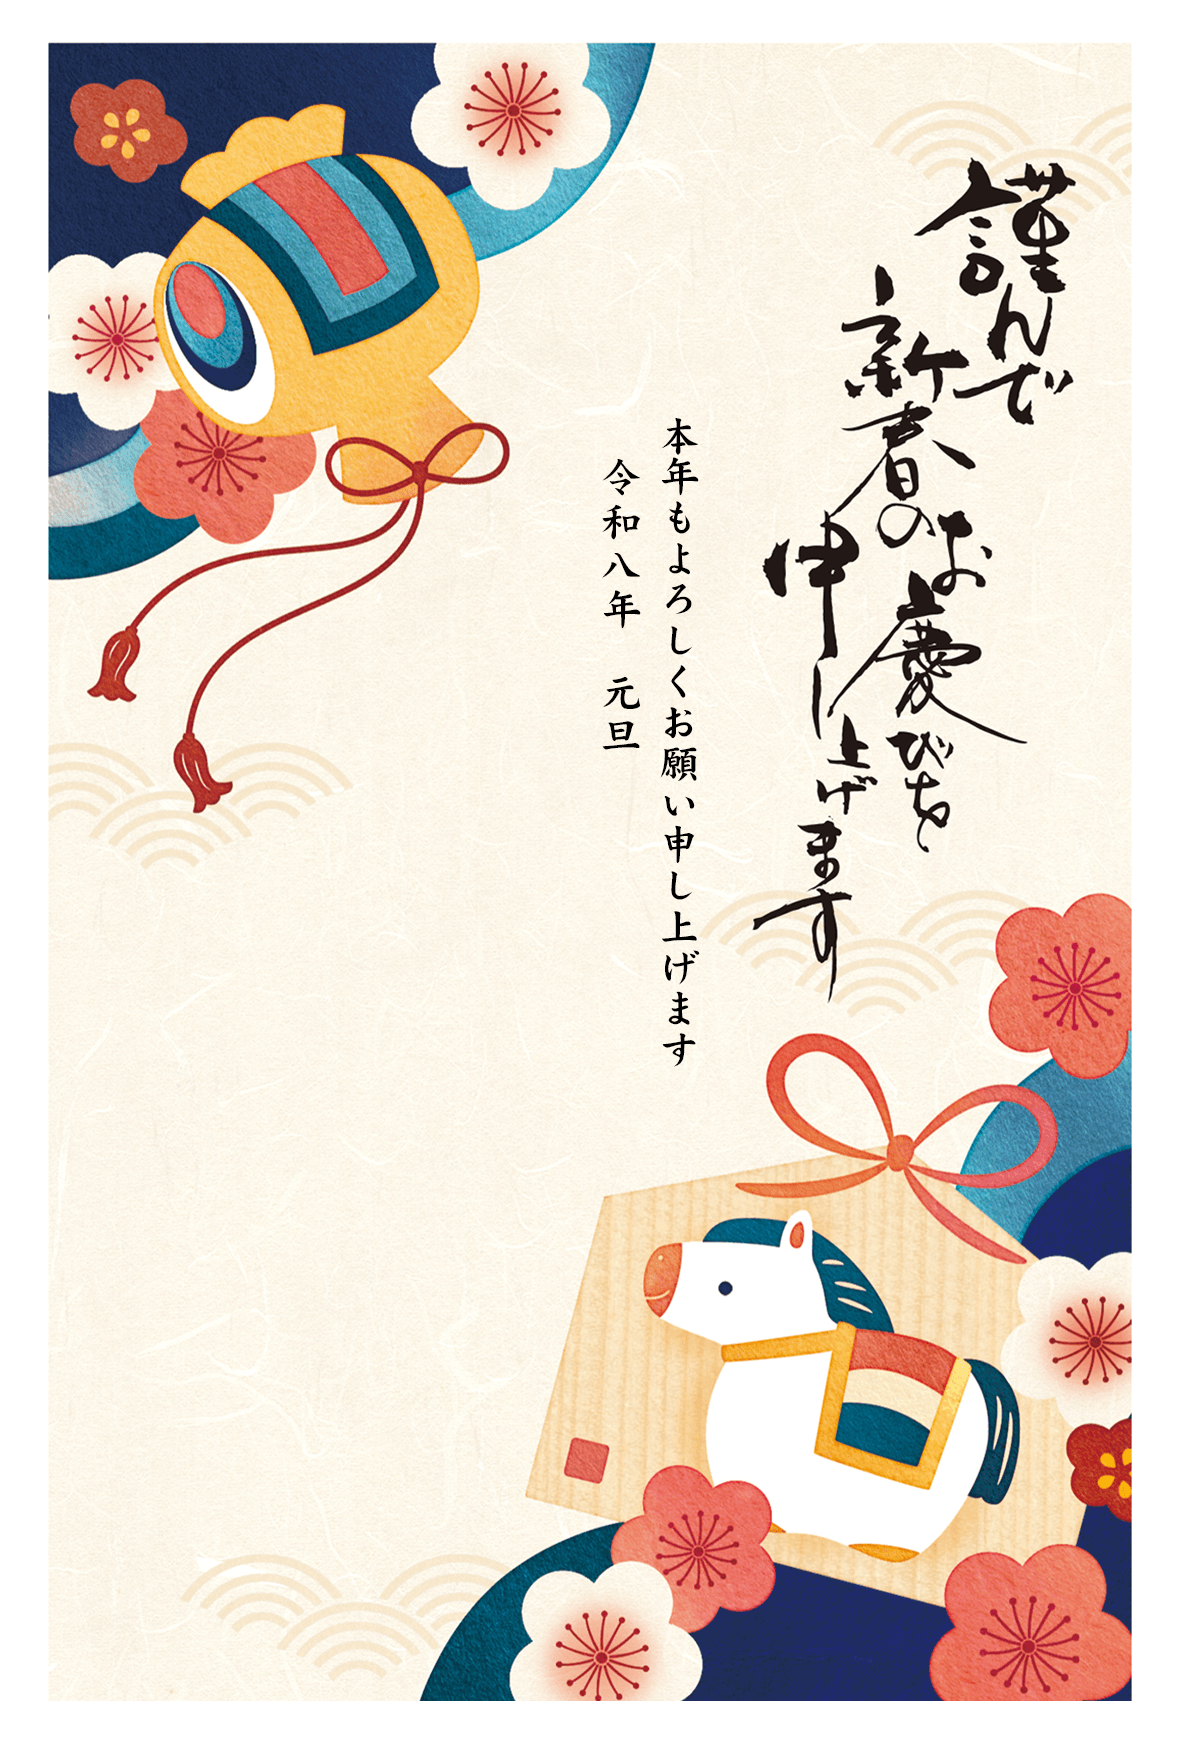 謹んで
新春のお慶びを
申し上げます
本年もよろしくお願い申し上げます
令和八年　元旦